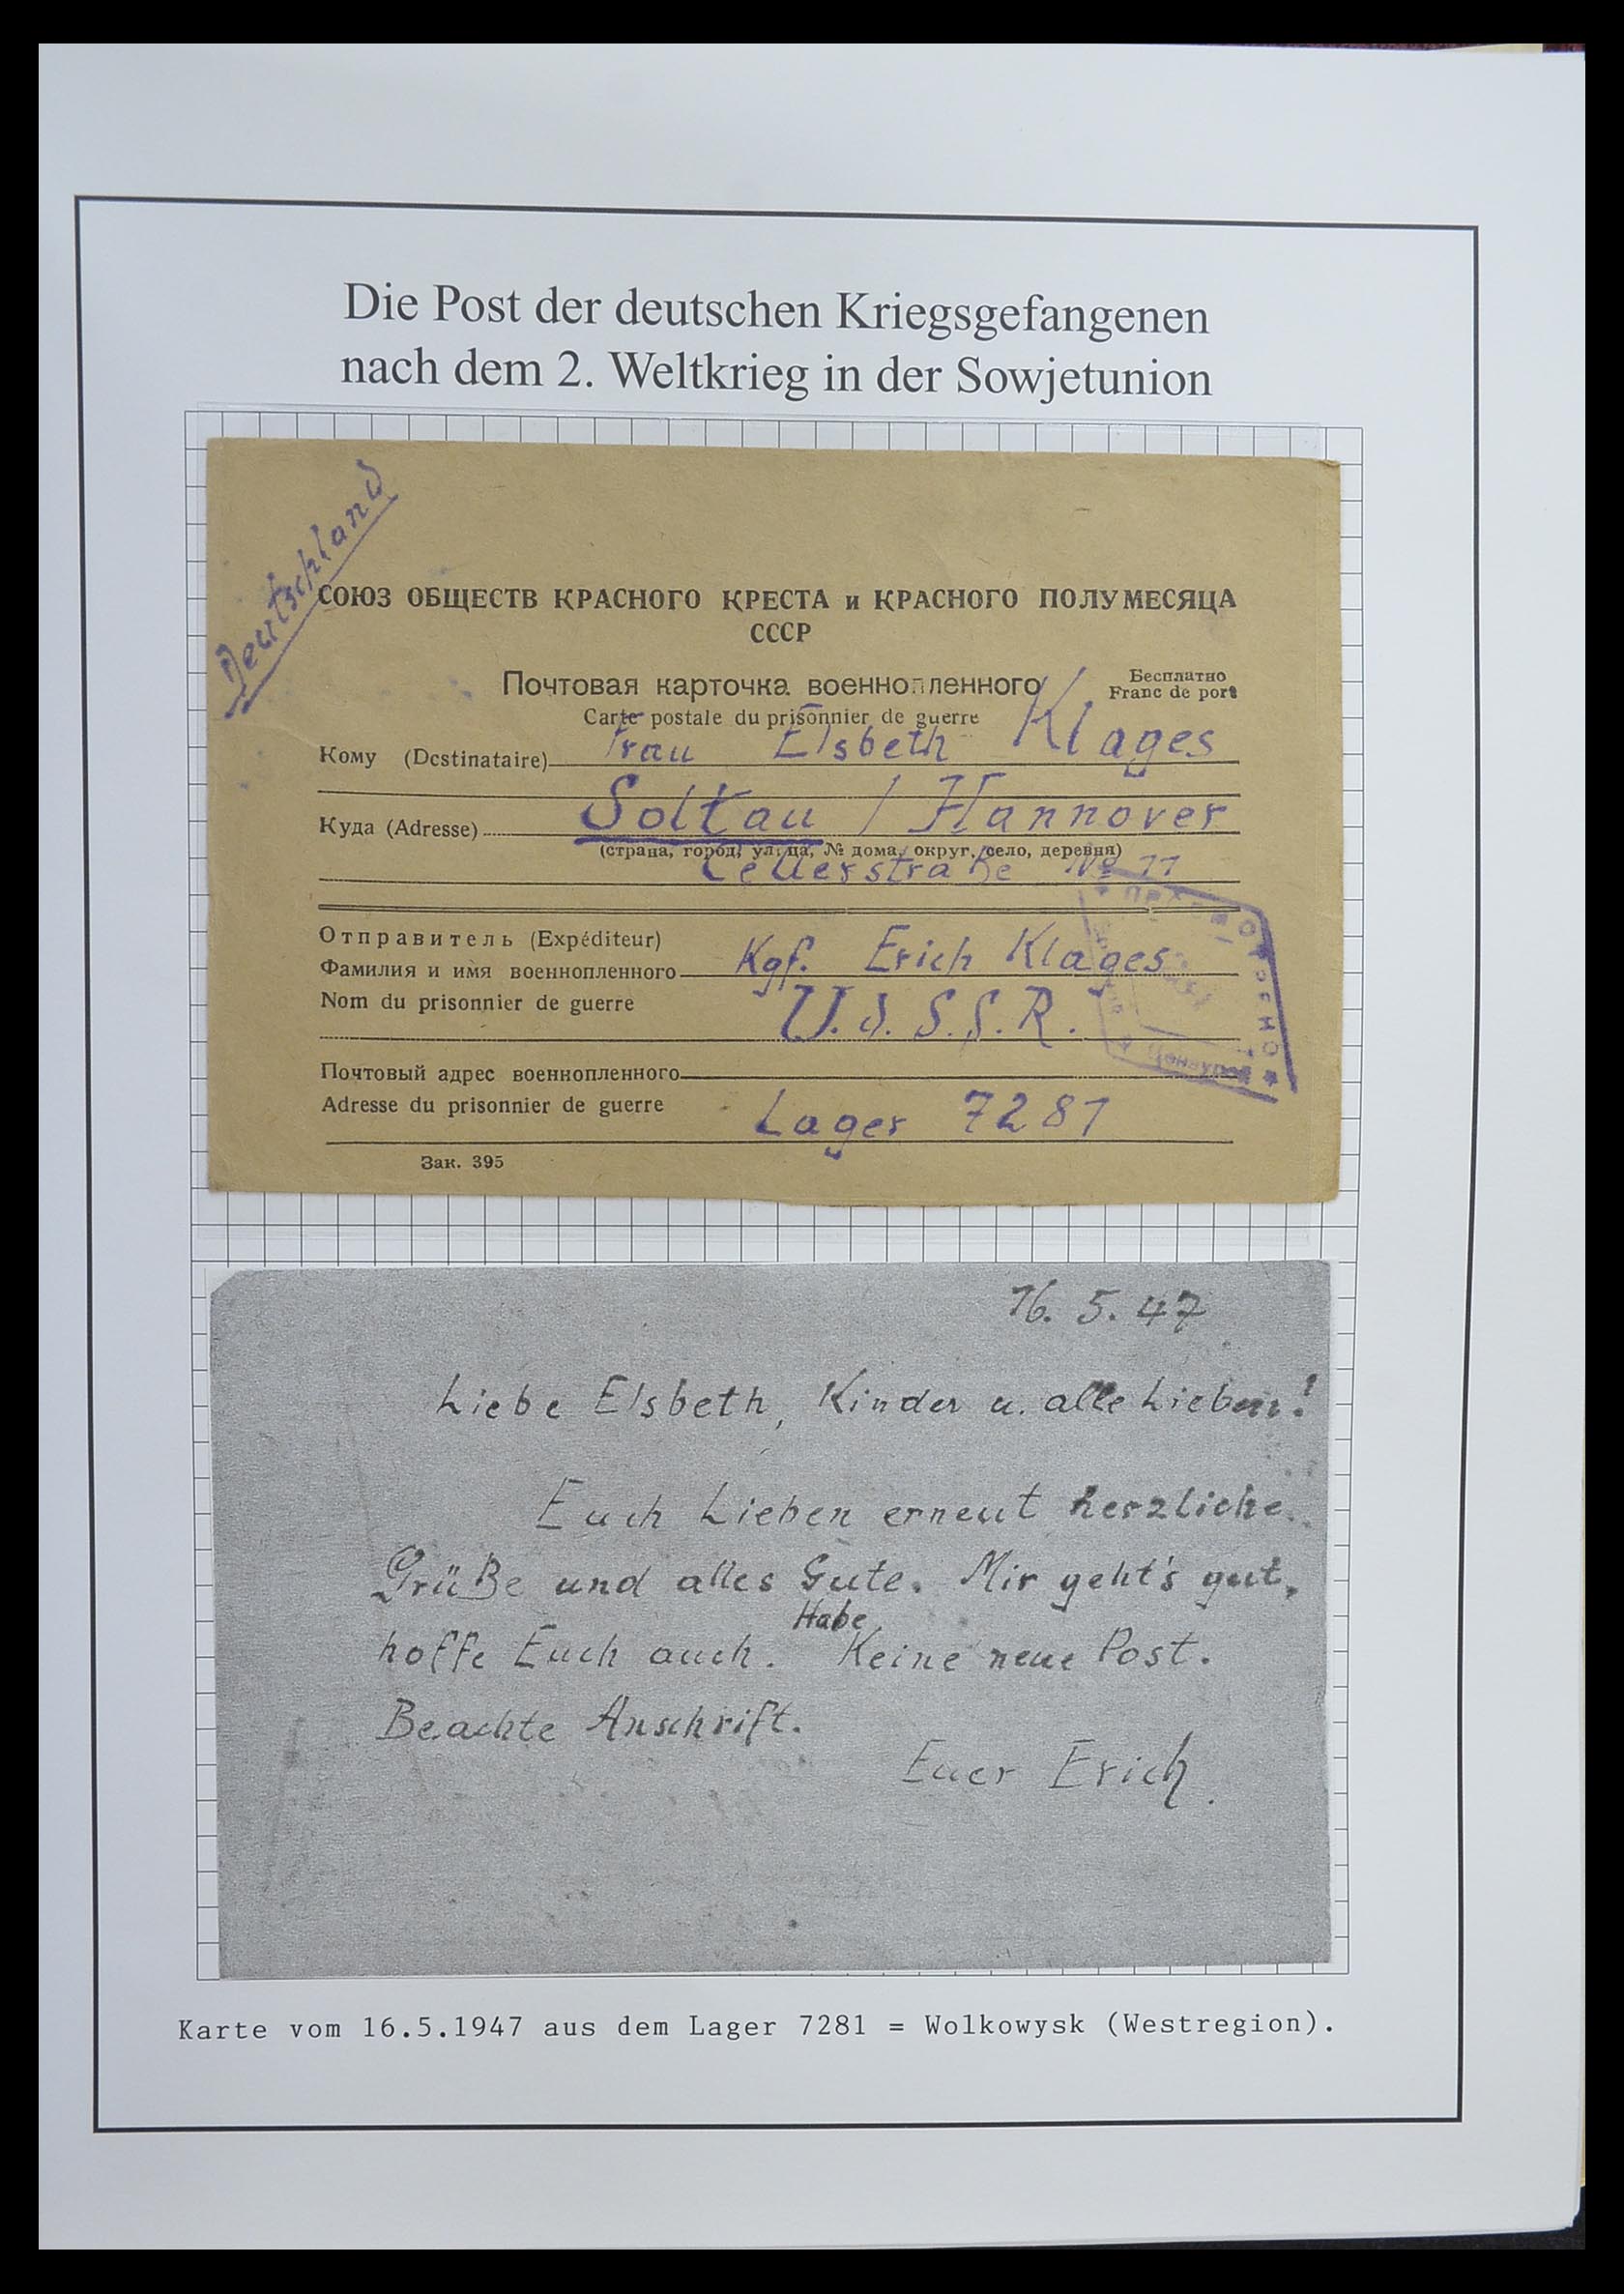 Die Post der deutschen Kriegsgefangenen
nach dem 2. Weltkrieg in der Sowjetunion
Deutschland
СОЮЗ ОБЩЕСТВ КРАСНОГО КРЕСТА и КРАСНОГО ПОЛУМЕСЯЦА
СССР
Почтовая карточка военнопленного
Бесплатно
Carte postale du prisonnier de guerre
Franc de port
Кому (Destinataire) Frau Elsbeth Klages
Куда (Adresse) Soltau / Hannover
(страна, город, улица, № дома, округ, село, деревня)
Cellerstraße No 11
Отправитель (Expéditeur)
Фамилия и имя военнопленного Kgf. Erich Klages
Nom du prisonnier de guerre U.d.S.S.R.
Почтовый адрес военнопленного
Adresse du prisonnier de guerre Lager 7281
Зак. 395
16. 5. 47
Liebe Elsbeth, Kinder u. alle Lieben!
Euch Lieben erneut herzliche
Grüße und alles Gute. Mir geht's gut,
hoffe Euch auch. Habe Keine neue Post.
Beachte Anschrift.
Euer Erich.
Karte vom 16.5.1947 aus dem Lager 7281 = Wolkowysk (Westregion).